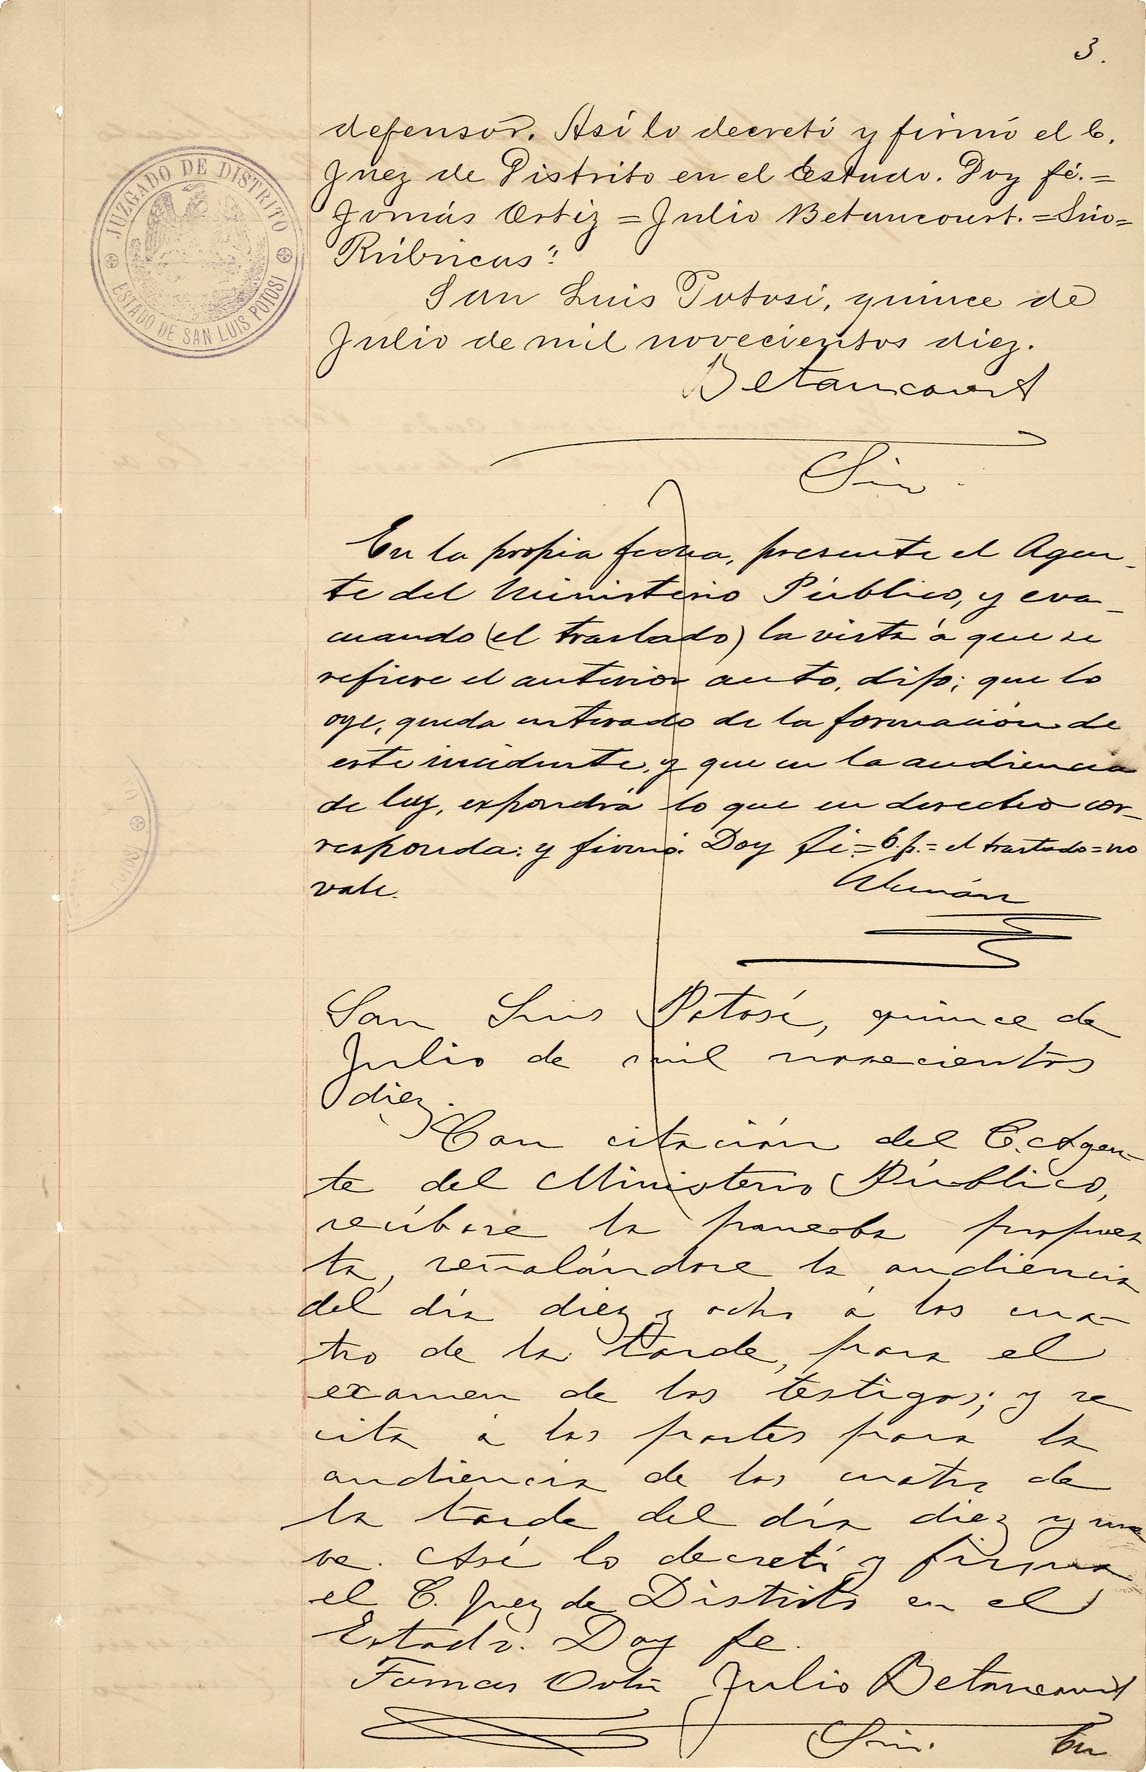 3.
defensor. Así lo decretó y firmó el C.
Juez de Distrito en el Estado. Doy fé.=
Tomás Ortiz = Julio Betancourt. = Srio=
Rúbricas".
San Luis Potosí, quince de
Julio de mil novecientos diez.
Betancourt
Srio.
En la propia fecha, presente el Agen-
te del Ministerio Público, y eva-
cuando (el traslado) la vista á que se
refiere el anterior auto, dijo; que lo
oye, queda enterado de la formación de
este incidente, y que en la audiencia
de ley, expondrá lo que en derecho cor-
responda: y firmó. Doy fé.= E.p.= el traslado = no
vale.
San Luis Potosí, quince de
Julio de mil novecientos
diez.
Con citación del C. Agen-
te del Ministerio Público,
recíbase la prueba propues
ta, señalándose la audiencia
del día diez y ocho á las cua-
tro de la tarde, para el
examen de los testigos; y se
cita á las partes para la
audiencia de las cuatro de
la tarde del día diez y nue
ve. Así lo decretó y firma
el C. Juez de Distrito en el
Estado. Doy fe.
Tomas Ortiz Julio Betancourt
Srio. En
JUZGADO DE DISTRITO
ESTADO DE SAN LUIS POTOSI